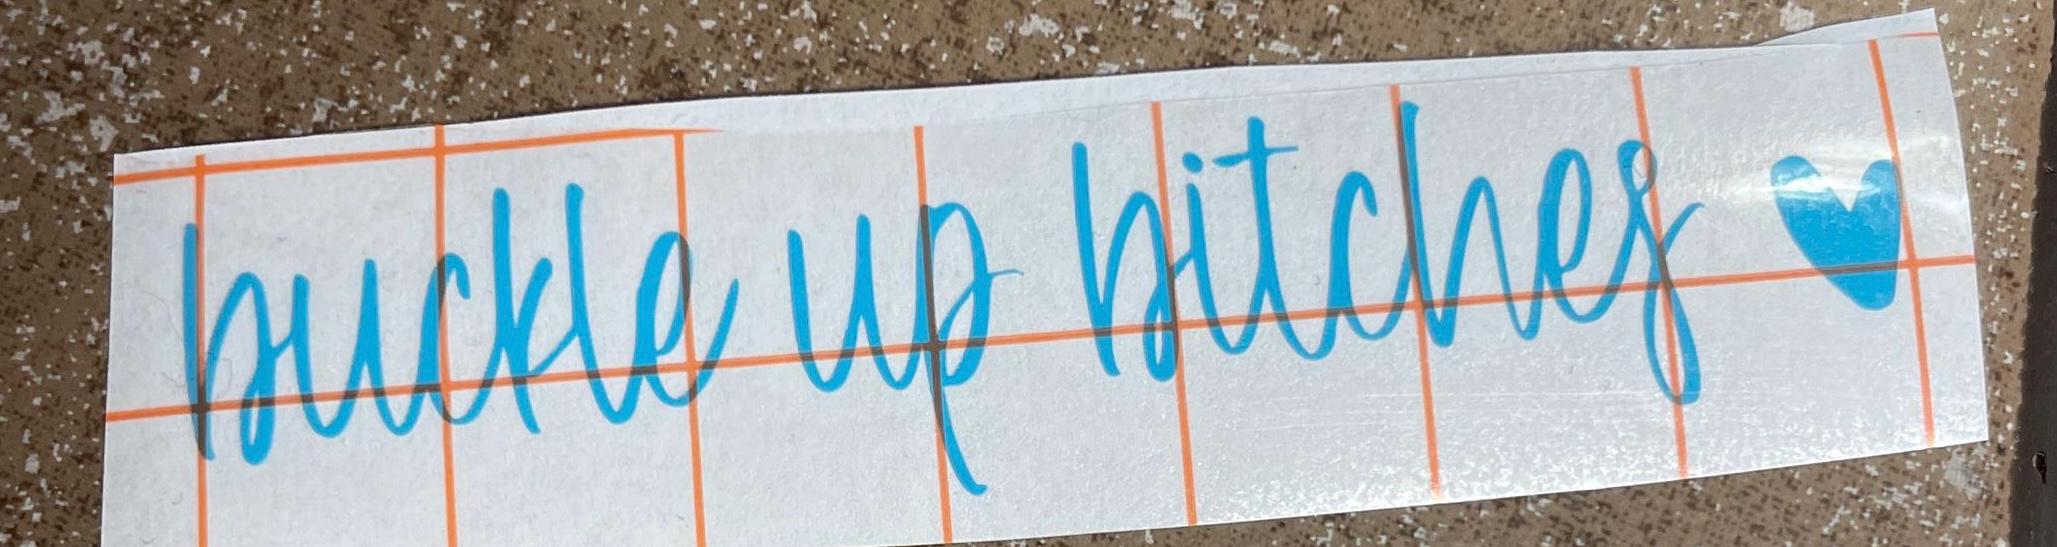 buckle up bitches